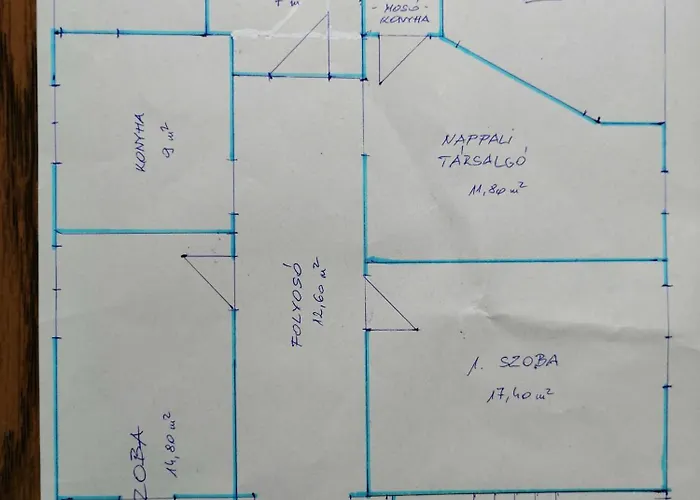 7 m²
- MOSÓ -
KONYHA
KONYHA
9 m²
NAPPALI
TÁRSALGÓ
11,80 m²
FOLYOSÓ
12,60 m²
1. SZOBA
17,40 m²
ZOBA
14,80 m²